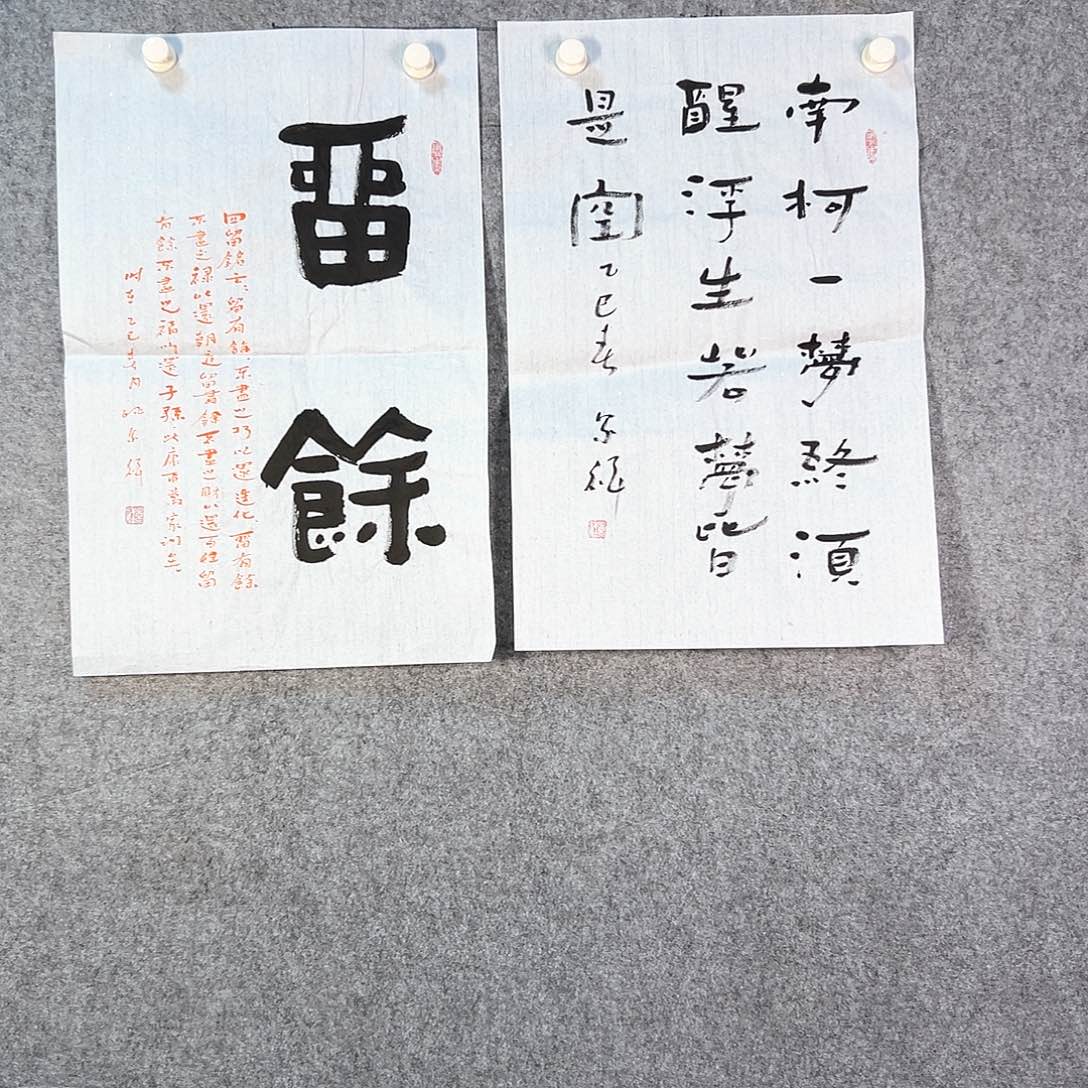 南柯一夢終須
醒浮生若夢皆
是空乙巳春
留餘
四留銘云留有餘不盡之巧以還造化留有餘
不盡之祿以還朝廷留有餘不盡之財以還百姓留
有餘不盡之福以還子孫
時在乙巳春月